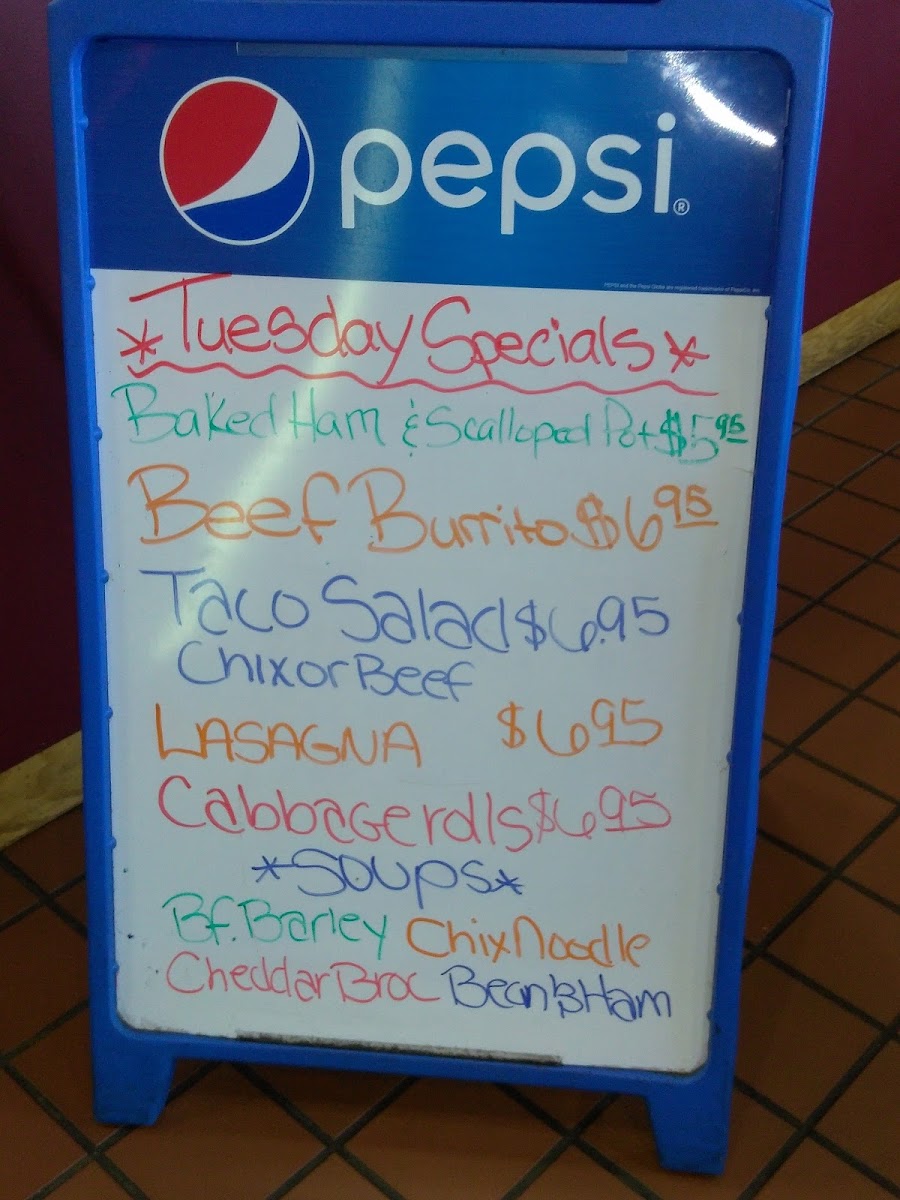 pepsi®
PEPSI and the Pepsi Globe are registered trademarks of PepsiCo, Inc.
*Tuesday Specials*
Baked Ham & Scalloped Pot $5.95
Beef Burrito $6.95
Taco Salad $6.95
Chix or Beef
LASAGNA $6.95
Cabbage rolls $6.95
*Soups*
Bf. Barley Chix Noodle
Cheddar Broc Bean & Ham